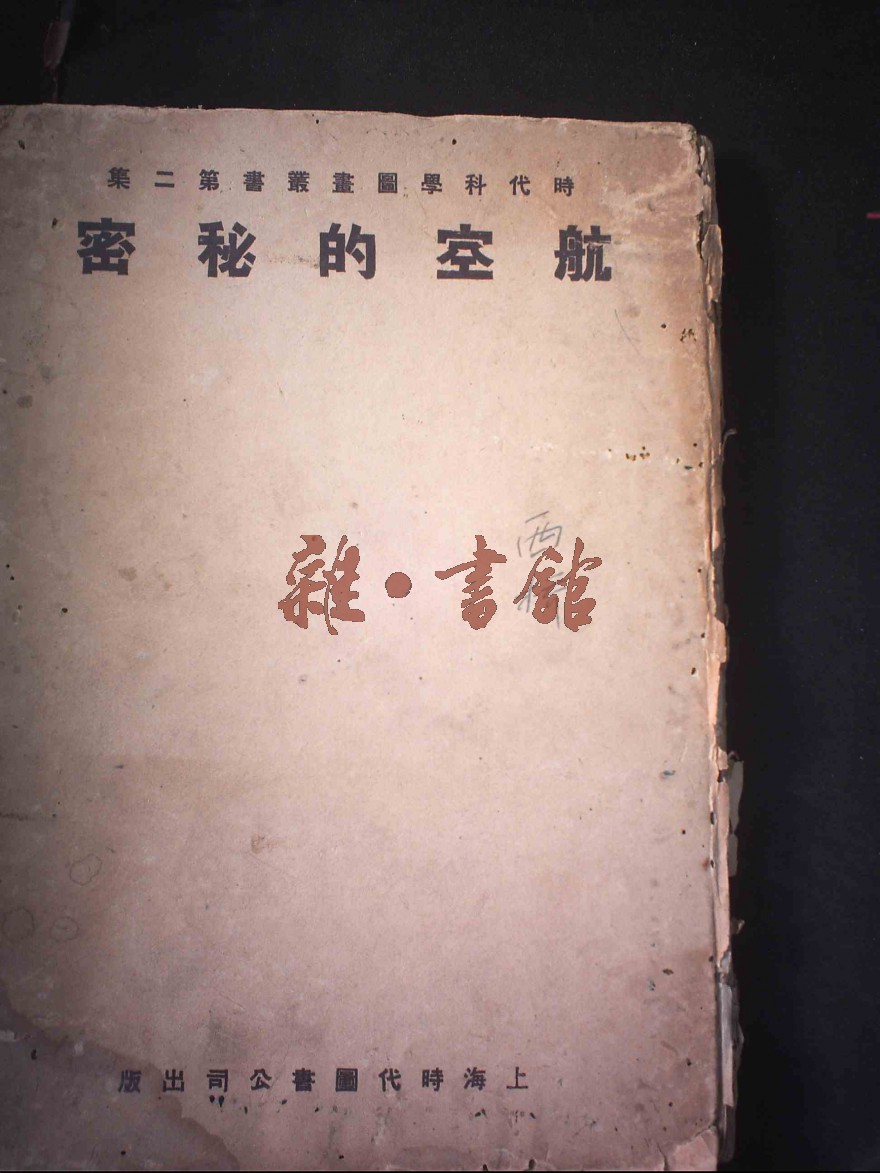 時代科學圖畫叢書第二集
航空的秘密
西
雜·書館
上海時代圖書公司出版